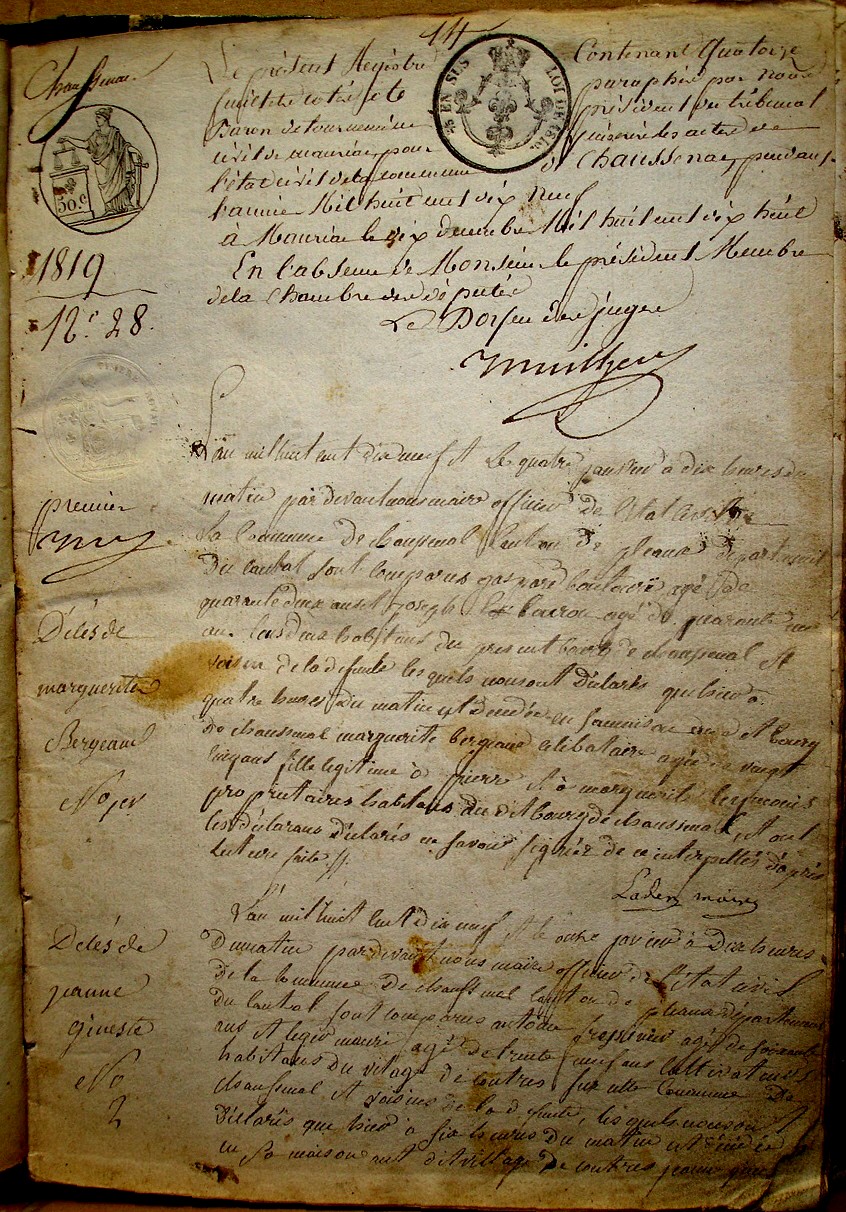 14
Chaussenac
Le présent Registre Contenant Quatorze
feuillets coté et paraphé par nous
Baron de tournemire président du tribunal
civil de mauriac pour inscrire les actes de
l'état civil de la commune de Chaussenac, pendant
l'année Mil huit cent dix neuf
à Mauriac le dix decembre Mil huit cent dix huit
En l'absence de Monsieur le président Membre
de la Chambre des députés
Le Doyen des juges
EN SUS
LOI DE 1816
50.c
1819
12.e 28.
premier
Décès de
marguerite
Bergeaud
No 1er
L'an mil huit cent dix neuf et le quatre janvier à dix heures du
matin par devant nous maire officier de l'état civil de
la Commune de chaussenac Canton de pleaux département
du cantal sont comparus gaspard agé de
quarante deux ans et joseph agé de quarante
ans les deux habitans du present bourg de chaussenac et
voisin de la defunte lesquels nous ont déclarés que hier à
quatre heures du matin est décédée en sa maison audit bourg
de chaussenac marguerite bergeaud célibataire agée de vingt
cinq ans fille legitime à pierre et à marguerite
proprietaires habitans du dit bourg de chaussenac, et ont
les déclarans déclarés ne savoir signer de ce interpellés d'après
lecture faite
maire
Décès de
jeanne
gineste
No
2
L'an mil huit cent dix neuf et le onze janvier à dix heures
du matin par devant nous maire officier de l'état civil
de la commune de chaussenac canton de pleaux département
du cantal sont comparus antoine agé de soixante
ans et leger mouri agé de trente neuf ans cultivateurs
habitans du village de contres sur cette Commune de
chaussenac et voisins de la defunte, lesquels nous ont
déclarés que hier à six heures du matin est décédée
en sa maison audit village de contres jeanne